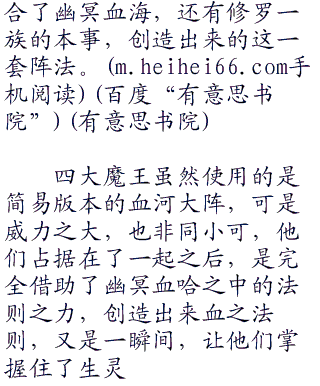 合了幽冥血海，还有修罗一
族的本事，创造出来的这一
套阵法。(m.heihei66.com手
机阅读)(百度“有意思书
院”)(有意思书院)
四大魔王虽然使用的是
简易版本的血河大阵，可是
威力之大，也非同小可，他
们占据在了一起之后，是完
全借助了幽冥血哈之中的法
则之力，创造出来血之法
则，又是一瞬间，让他们掌
握住了生灵